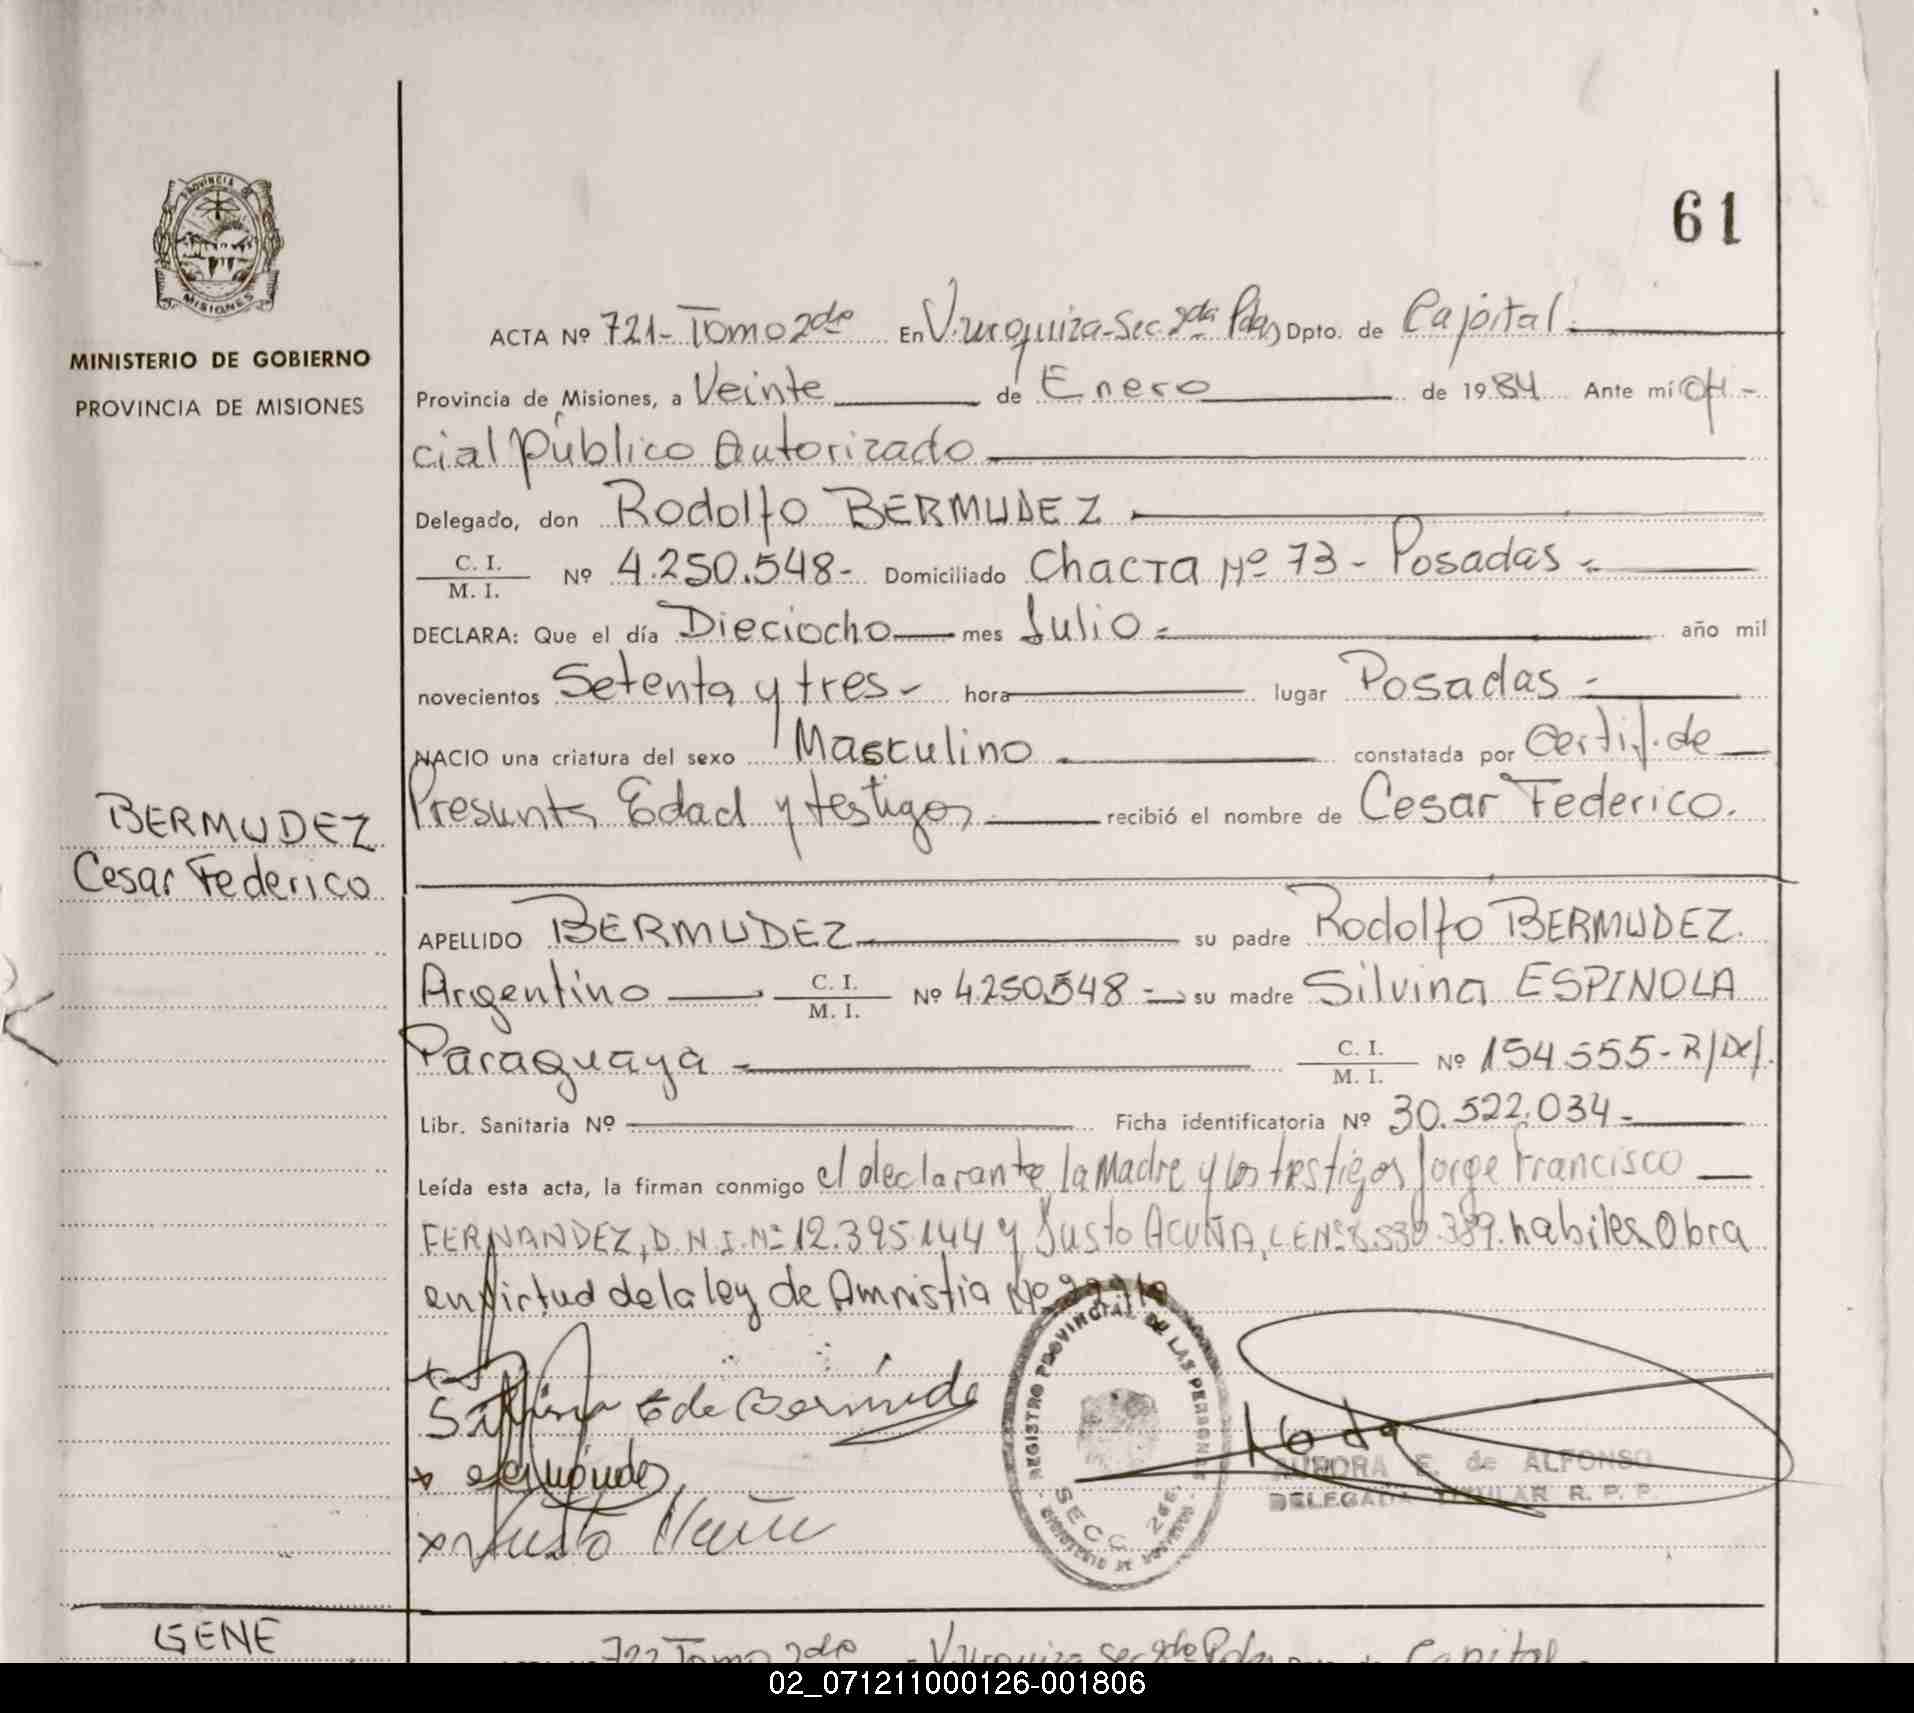 PROVINCIA DE
MISIONES
MINISTERIO DE GOBIERNO
PROVINCIA DE MISIONES
61
ACTA Nº 721- Tomo 2do En V. Urquiza-Sec. 2da Pdas Dpto. de Capital
Provincia de Misiones, a Veinte de Enero de 1984 Ante mí Ofi-
cial Público Autorizado
Delegado, don Rodolfo BERMUDEZ
C. I.
M. I. Nº 4.250.548- Domiciliado Chacra Nº 73 - Posadas -
DECLARA: Que el día Dieciocho mes Julio - año mil
novecientos Setenta y tres - hora lugar Posadas -
NACIO una criatura del sexo Masculino constatada por Certif. de
Presunta Edad y testigos recibió el nombre de Cesar Federico.
BERMUDEZ
Cesar Federico
APELLIDO BERMUDEZ su padre Rodolfo BERMUDEZ.
Argentino C. I.
M. I. Nº 4.250.548 - su madre Silvina ESPINOLA
Paraguaya - C. I.
M. I. Nº 154.555- R/Del.
Libr. Sanitaria Nº Ficha identificatoria Nº 30.522.034-
Leída esta acta, la firman conmigo el declarante, la Madre y los testigos Jorge Francisco
FERNANDEZ, D.N.I. Nº 12.395.144 y Justo ACUÑA, L E Nº 8.530.389. habiles. Obra
en virtud de la ley de Amnistia Nº
Silvina E de Bermúde
x
x Justo
REGISTRO PROVINCIAL DE LAS PERSONAS
SECC. 2da.
AURORA E. de ALFONSO
DELEGADA TITULAR R. P. P.
GENE
722 Tomo 2do V. Urquiza Sec 2da Pdas Capital -
02_071211000126-001806